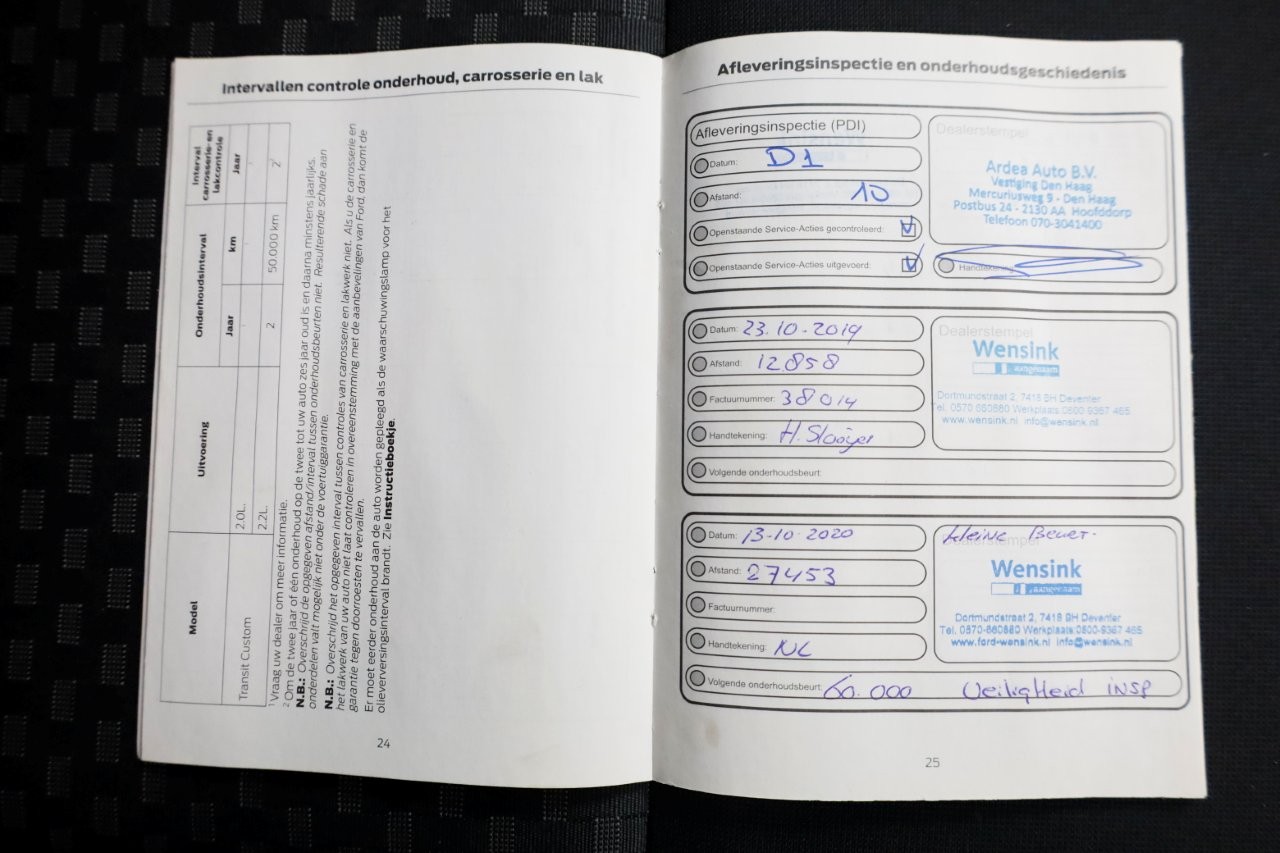 Intervallen controle onderhoud, carrosserie en lak
Model
Uitvoering
Onderhoudsinterval
Interval
carrosserie-en
lakcontrole
Jaar
km
Jaar
Transit Custom
2.0L.
2.2L.
2
50.000 km
2
1 Vraag uw dealer om meer informatie.
2 Om de twee jaar of één onderhoud op de twee tot uw auto zes jaar oud is en daarna minstens jaarlijks.
N.B.: Overschrijd de opgegeven afstand/interval tussen onderhoudsbeurten niet. Resulterende schade aan
onderdelen valt mogelijk niet onder de voertuiggarantie.
N.B.: Overschrijd het opgegeven interval tussen controles van carrosserie en lakwerk niet. Als u de carrosserie en
het lakwerk van uw auto niet laat controleren in overeenstemming met de aanbevelingen van Ford, dan komt de
garantie tegen doorroesten te vervallen.
Er moet eerder onderhoud aan de auto worden gepleegd als de waarschuwingslamp voor het
olieverversingsinterval brandt. Zie Instructieboekje.
24
Afleveringsinspectie en onderhoudsgeschiedenis
Afleveringsinspectie (PDI)
Datum: D1
Afstand: 10
Openstaande Service-Acties gecontroleerd:
Openstaande Service-Acties uitgevoerd:
Dealerstempel
Ardea Auto B.V.
Vestiging Den Haag
Mercuriusweg 9 - Den Haag
Postbus 24 - 2130 AA Hoofddorp
Telefoon 070-3041400
Handtekening
Datum: 23.10-2019
Afstand: 12858
Factuurnummer: 38014
Handtekening:
Volgende onderhoudsbeurt
Dealerstempel
Wensink
aangenaam
Dortmundstraat 2, 7418 BH Deventer
Tel. 0570-660660 Werkplaats:0800-9367 465
www.wensink.nl info@wensink.nl
Datum: 13-10-2020
Afstand: 27453
Factuurnummer:
Handtekening: NL
Volgende onderhoudsbeurt: 60.000 Veiligheid insp
Kleine Beurt.
Wensink
aangenaam
Dortmundstraat 2, 7418 BH Deventer
Tel. 0570-660660 Werkplaats:0800-9367 465
www.ford-wensink.nl info@wensink.nl
25